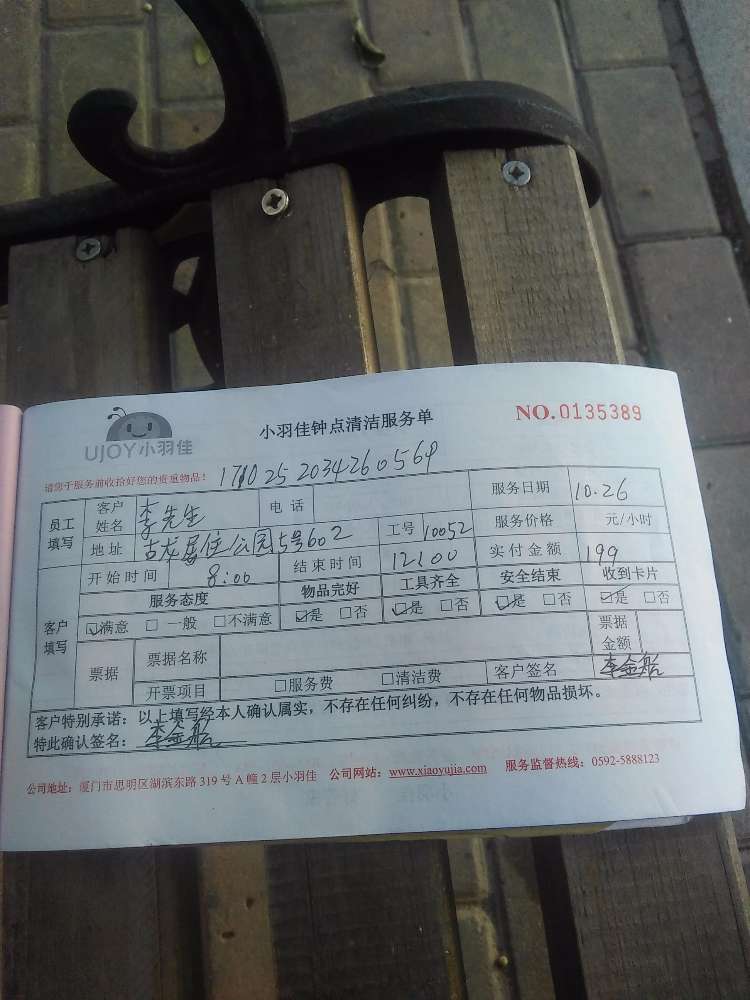 UJOY小羽佳
小羽佳钟点清洁服务单
NO.0135389
请您于服务前收拾好您的贵重物品！
171025 2034260569
员工填写 客户姓名 李先生 电话 服务日期 10.26
地址 古龙居住公园5号602 工号 10052 服务价格 元/小时
客户填写 开始时间 8:00 结束时间 12:00 实付金额 199
服务态度 物品完好 工具齐全 安全结束 收到卡片
☑满意 □一般 □不满意 ☑是 □否 ☑是 □否 ☑是 □否 ☑是 □否
票据 票据名称 票据金额
开票项目 □服务费 □清洁费 客户签名
客户特别承诺：以上填写经本人确认属实，不存在任何纠纷，不存在任何物品损坏。
特此确认签名：
公司地址：厦门市思明区湖滨东路319号A幢2层小羽佳 公司网站：www.xiaoyujia.com 服务监督热线：0592-5888123